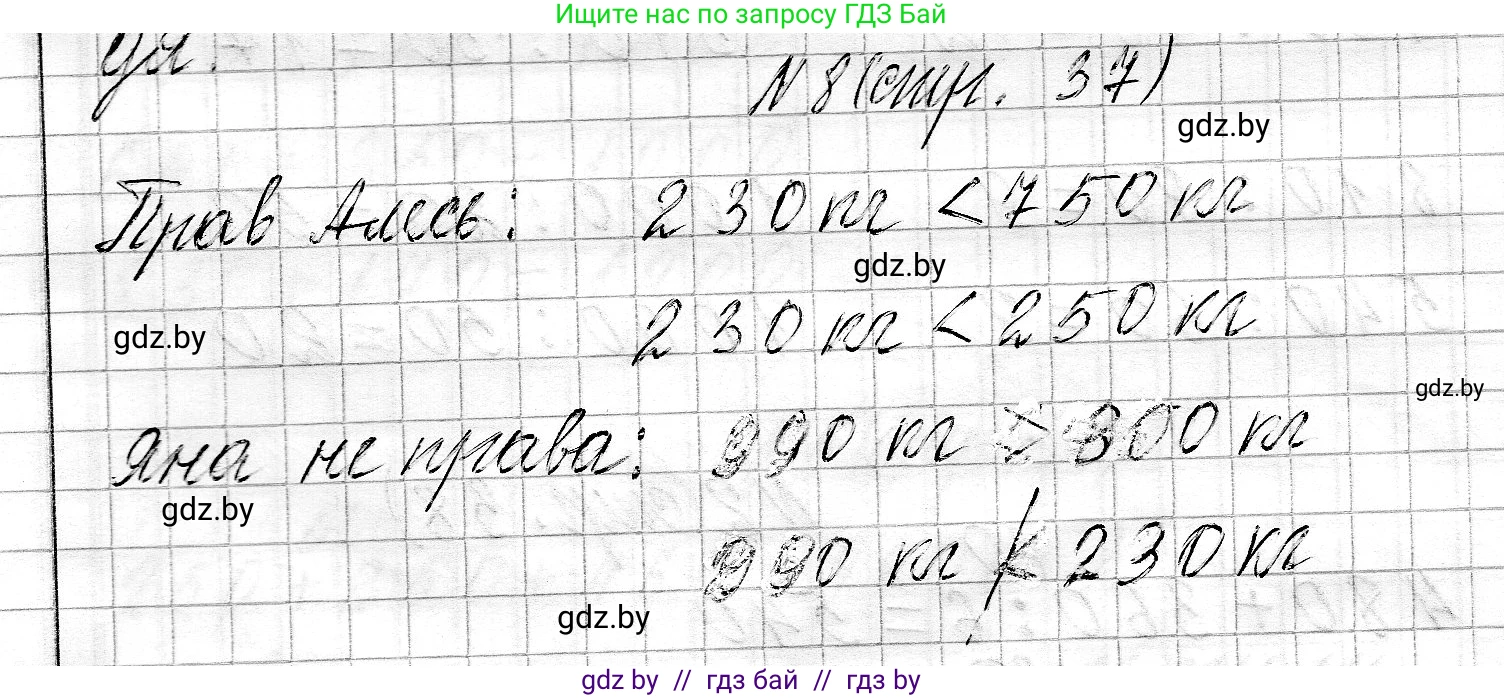 Ищите нас по запросу ГДЗ Бай
уя.
№ 8 (стр. 37)
gdz.by
Прав Алесь: 230 кг < 750 кг
gdz.by
230 кг < 250 кг
gdz.by
gdz.by
Яна не права: 990 кг > 800 кг
gdz.by
990 кг ≮ 230 кг
gdz.by
gdz by // гдз бай // гдз by